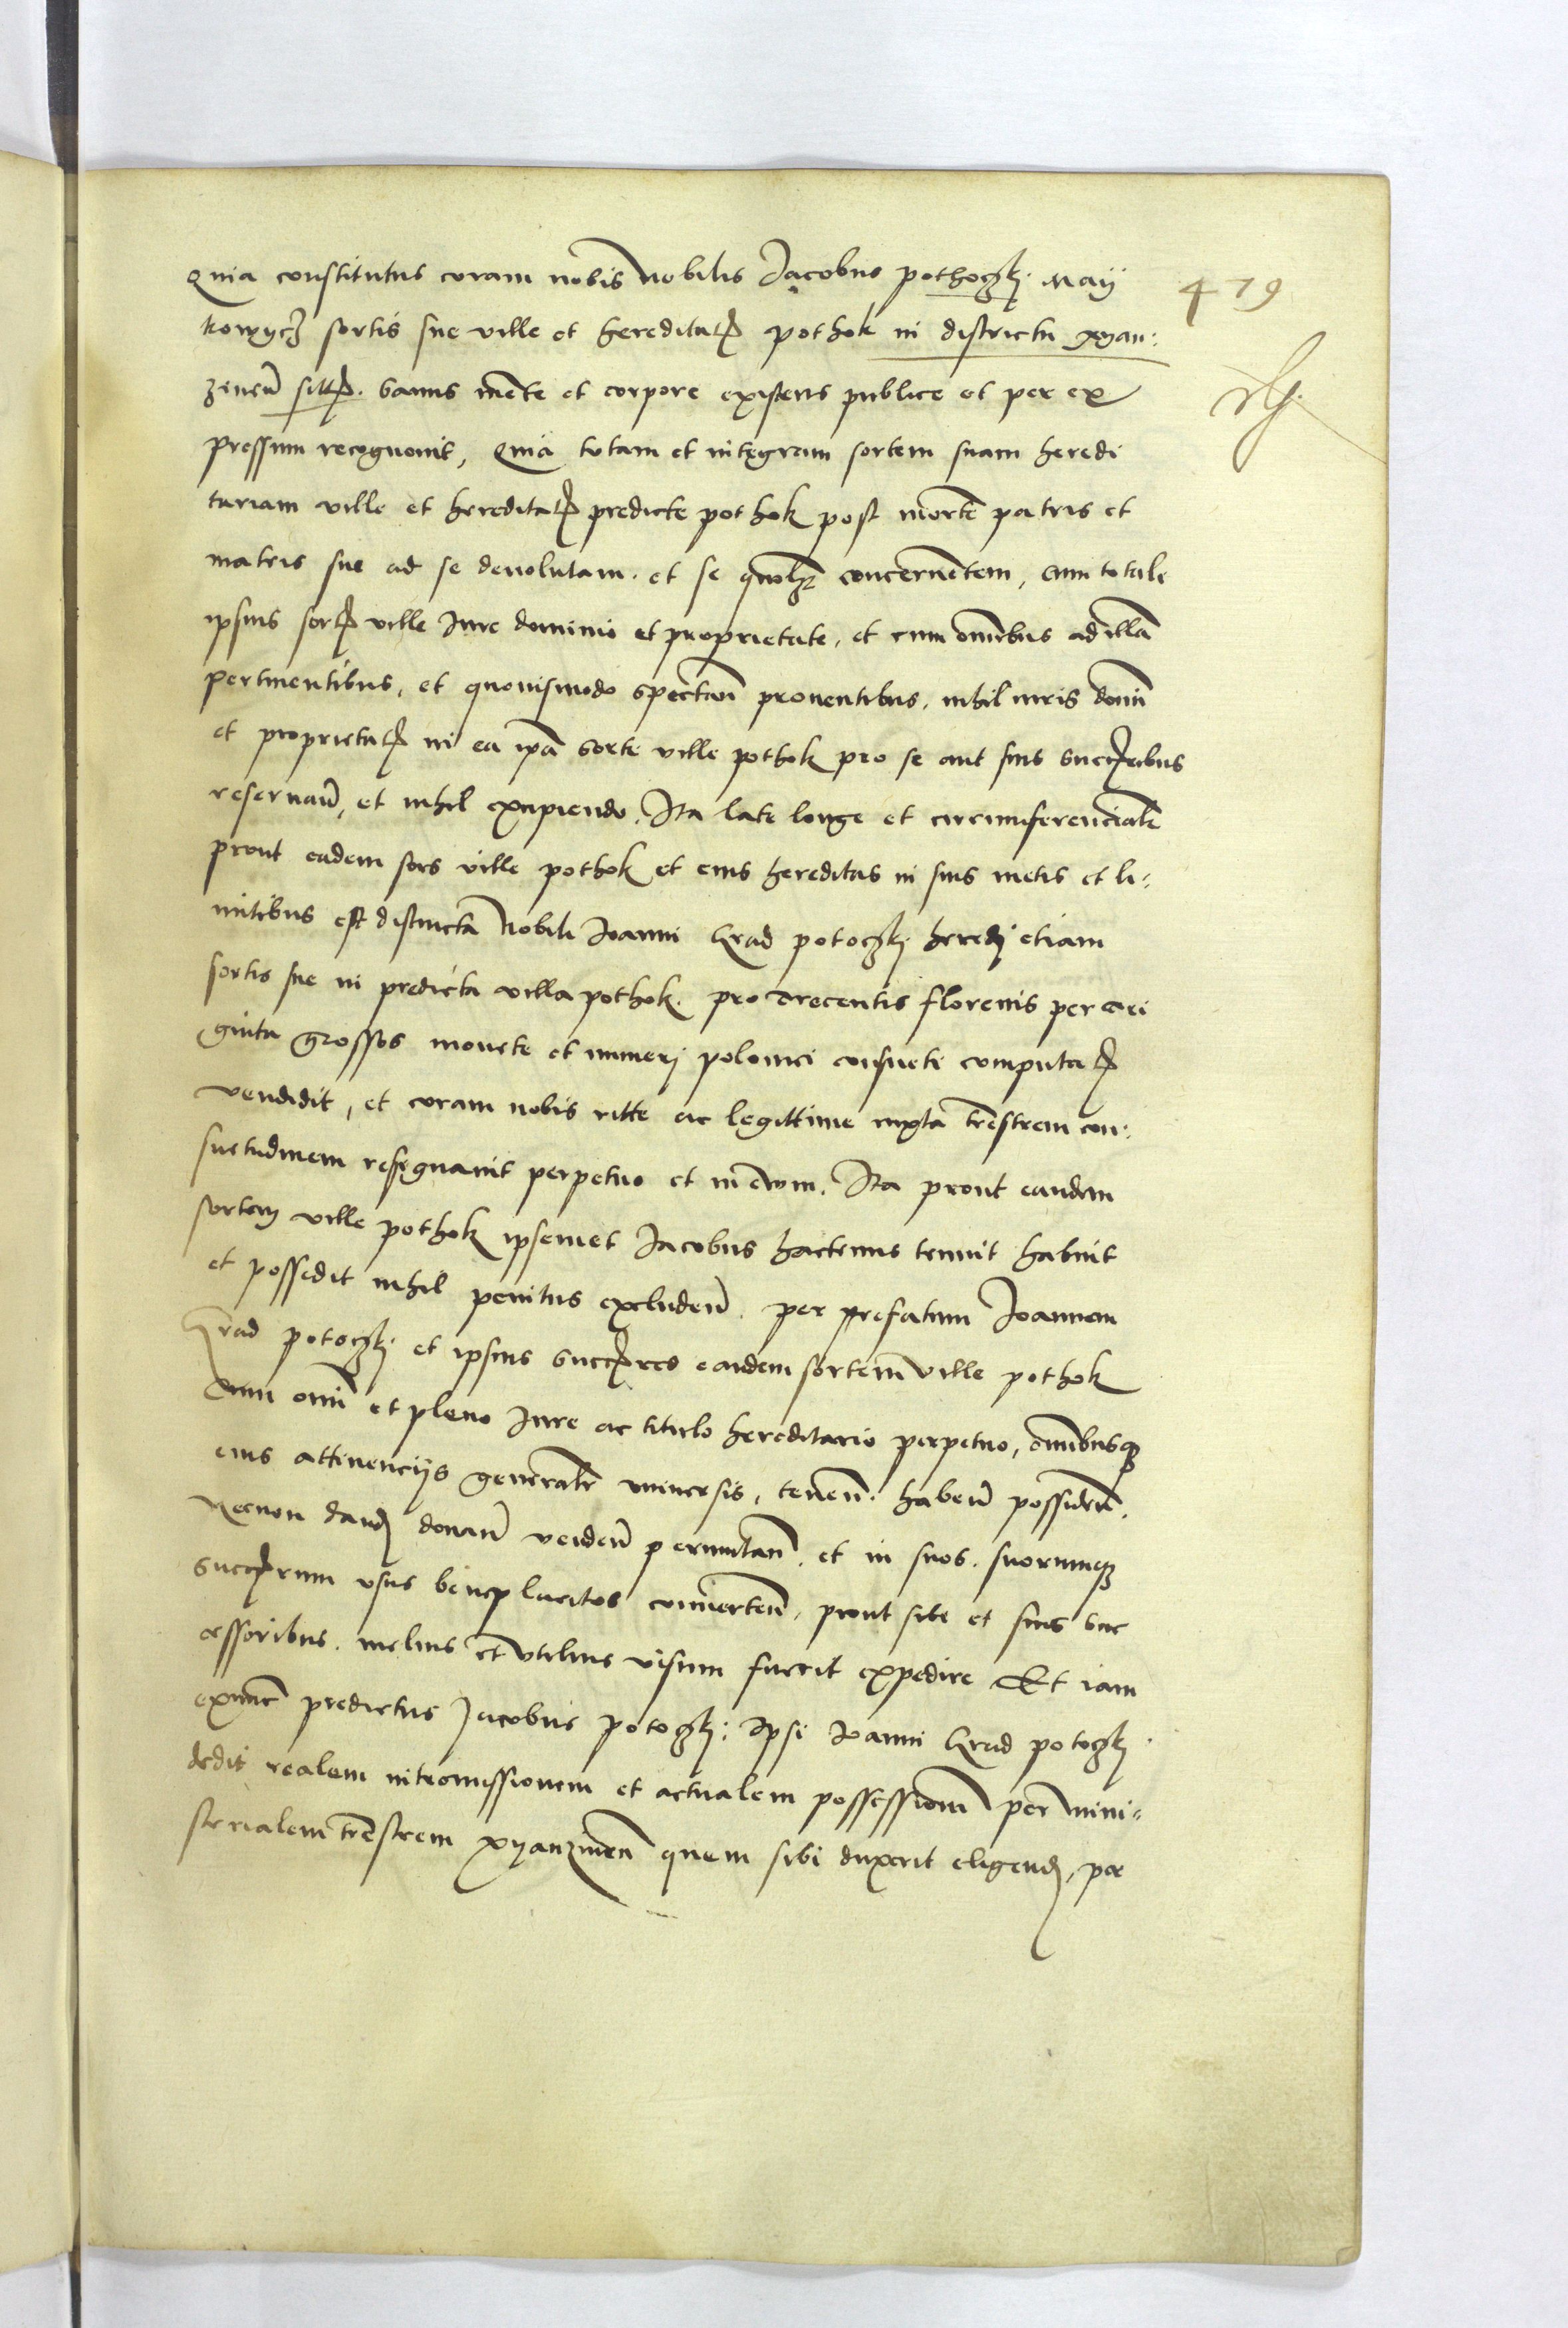 Quia constitutus coram nobis nobilis Jacobus pothoczkj May 479
kowycz sortis sue ville et hereditatis pothok in districtu xyan:
zinen sittus. sanus mente et corpore existens publice et per ex
pressum recognouit, Quia totam et integram sortem suam heredi
tariam ville et hereditatis predicte pothok post morte patris et
matris sue ad se deuolutam. et se quolz concernentem, cum totale
ipsius sortis ville Jure dominio et proprietate, et cum omnibus ad illa
pertinentibus, et quouismodo spectan prouentibus. nihil iuris domi
et proprietatis in ea ipa sorte ville pothok pro se aut suis successoribus
reseruan, et nihil excipiendo. Ita late longe et circumferencialr
prout eadem sors ville pothok et eius hereditas in suis metis et li-
mitibus est distincta Nobili Joanni potoczkj heredj etiam
sortis sue in predicta villa pothok. pro trecentis florenis per tri
ginta grossos monete et numerj polonici consueti computatis
vendidit, et coram nobis ritte ac legittime iuxta trestrem con:
suetudinem resignauit perpetuo et in ewm. Ita prout eandem
sortem ville pothok ipsemet Jacobus hactenus tenuit habuit
et possedit nihil penitus excluden. per prefatum Joannem
potoczkj et ipsius successores eandem sortem ville pothok
Cum omi et pleno Jure ac titulo hereditario perpetuo, omnibusqz
eius attinencijs generalr vniuersis, tenen. haben possiden.
Necnon dandj donan venden permutan. et in suos. suorumqz
successorum vsus beneplacitos conuerten, prout sibi et suis suc
cessoribus. melius et vtilius visum fuerit expedire Et iam
exnunc predictus Jacobus potoczkj. ipsi Joanni potoczkj.
dedit realem intromissionem et actualem possessionem per mini-
sterialem trestrem xyanzinen quem sibi duxerit eligendj, per